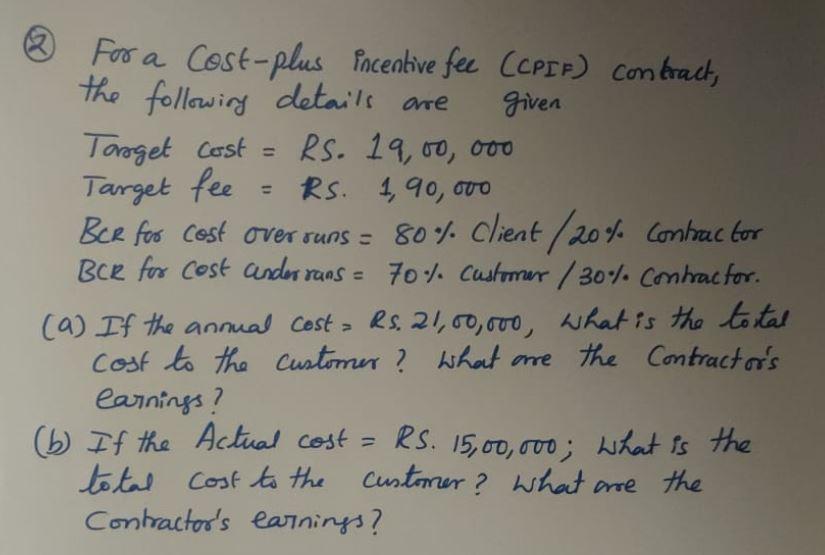 ② For a Cost-plus incentive fee (CPIF) contract,
the following details are given
Target cost = RS. 19,00,000
Target fee = RS. 1,90,000
BCR for cost over runs = 80% Client / 20% Contractor
BCR for Cost under runs = 70% Customer / 30% Contractor.
(a) If the annual cost = RS. 21,00,000, what is the total
cost to the customer? What are the Contractor's
earnings?
(b) If the Actual cost = RS. 15,00,000; what is the
total cost to the customer? What are the
Contractor's earnings?